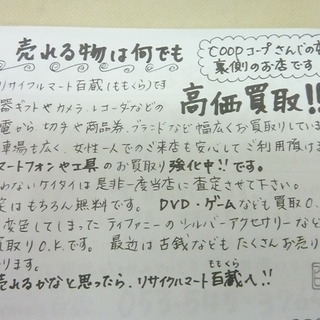 売れる物は何でも
COOPコープさんじの
裏側のお店です
リサイクルマート百蔵(ももくら)です
器ギフトやカメラ、レコーダなどの
高価買取!!
電から、切手や商品券、ブランドなど幅広くお買取りしていま
車場も広く、女性一人でのご来店も安心してご利用頂けま
マートフォンや工具のお買取り強化中!!です。
わないケイタイは是非一度当店に査定させて下さい。
定はもちろん無料です。DVD・ゲームなども買取O.
変色してしまったティファニーのシルバーアクセサリーなど
買取りO.K.です。最近は古銭などもたくさんお売り
ります。
ももくら
売れるかなと思ったら、リサイクルマート百蔵へ!!